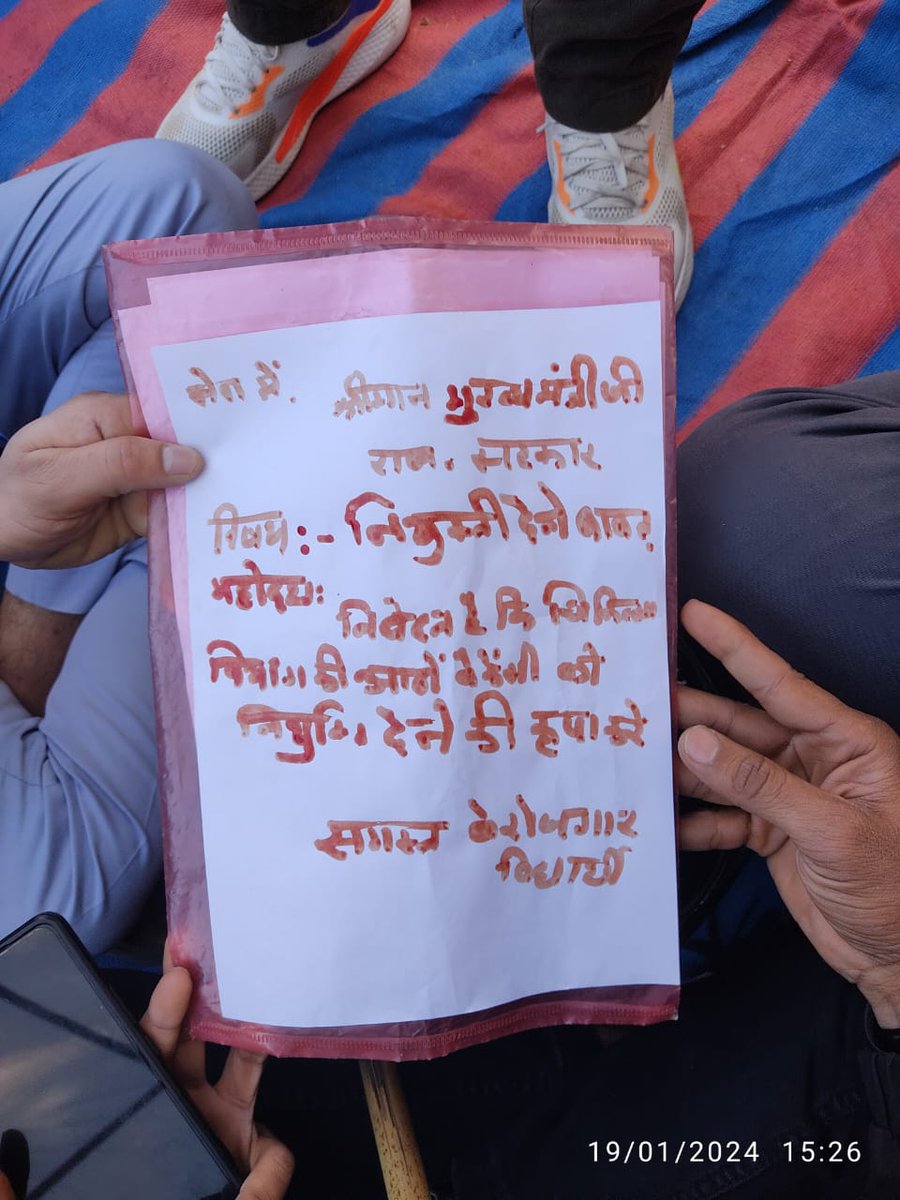 सेवा में. श्रीमान मुख्यमंत्री जी
राज. सरकार
विषय :- नियुक्ती देने बाबत्
महोदय:
निवेदन है कि चिकित्सा
विभाग की आठों केडेंर्स को
नियुक्ति देने की कृपा करे
समस्त बेरोजगार
विद्यार्थी
19/01/2024 15:26